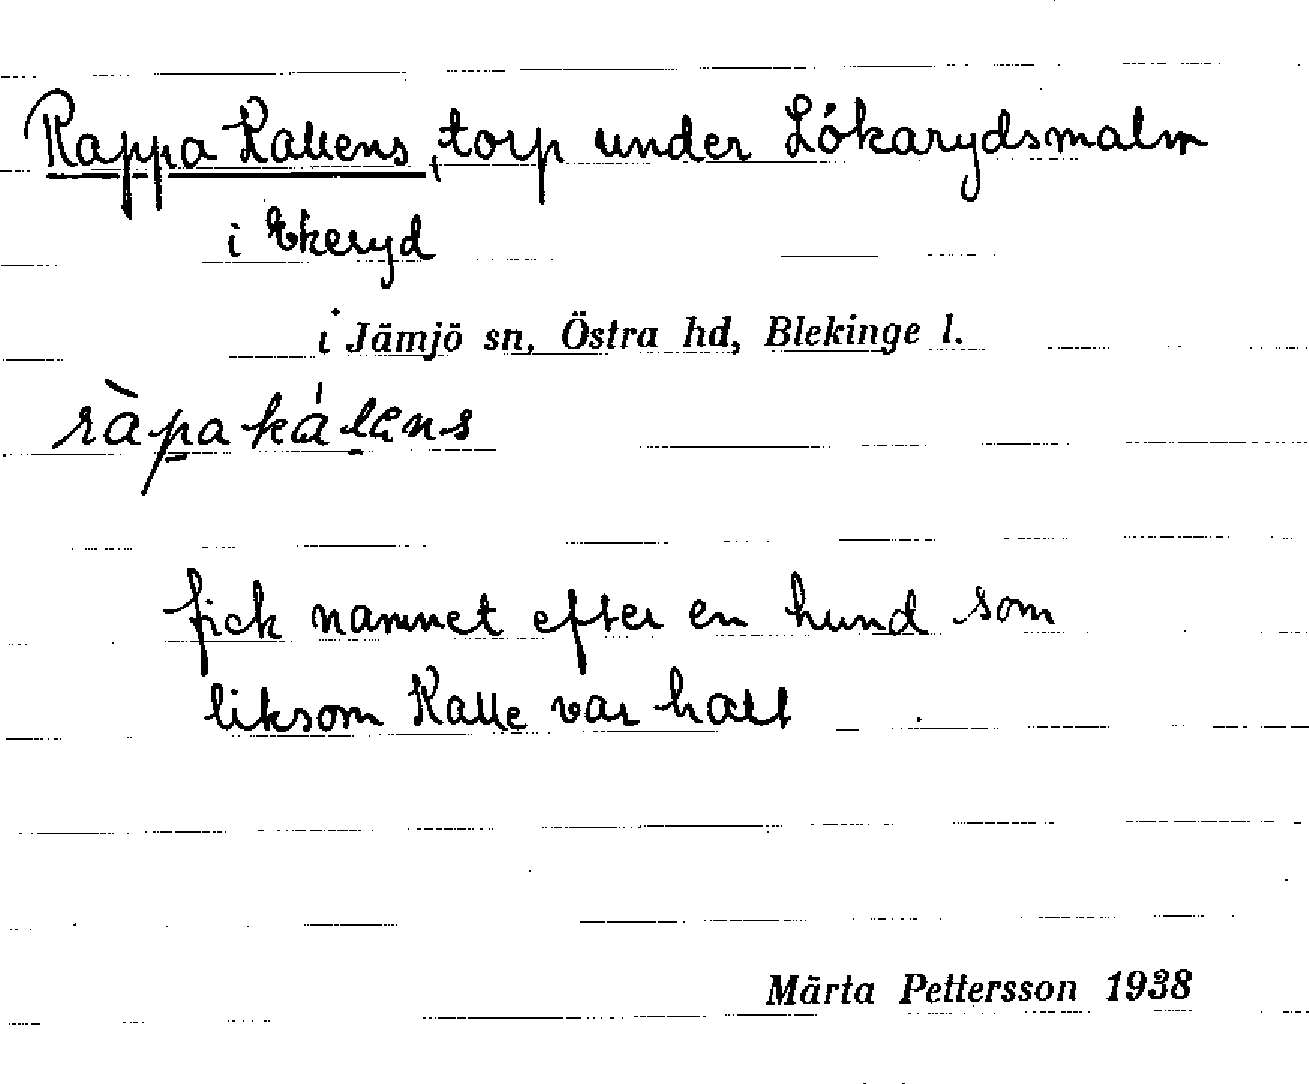 Rappa Kallens, torp under Lökarydsmalm
i Ekeryd
i Jämjö sn, Östra hd, Blekinge l.
ràpa kálens
fick namnet efter en hund som
liksom Kalle var halt
Märta Pettersson 1938